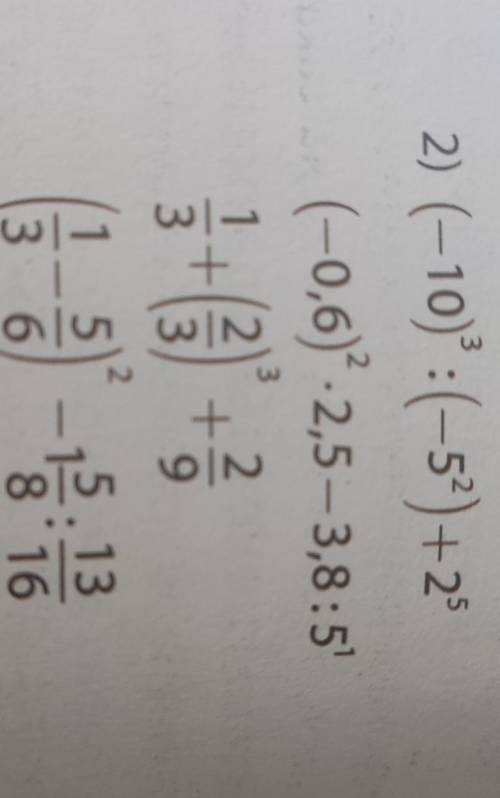 2) (−10)³ : (−5²) + 2⁵
(−0,6)² · 2,5 − 3,8 : 5¹
1/3 + (2/3)³ + 2/9
(1/3 − 5/6)² − 1 5/8 : 13/16